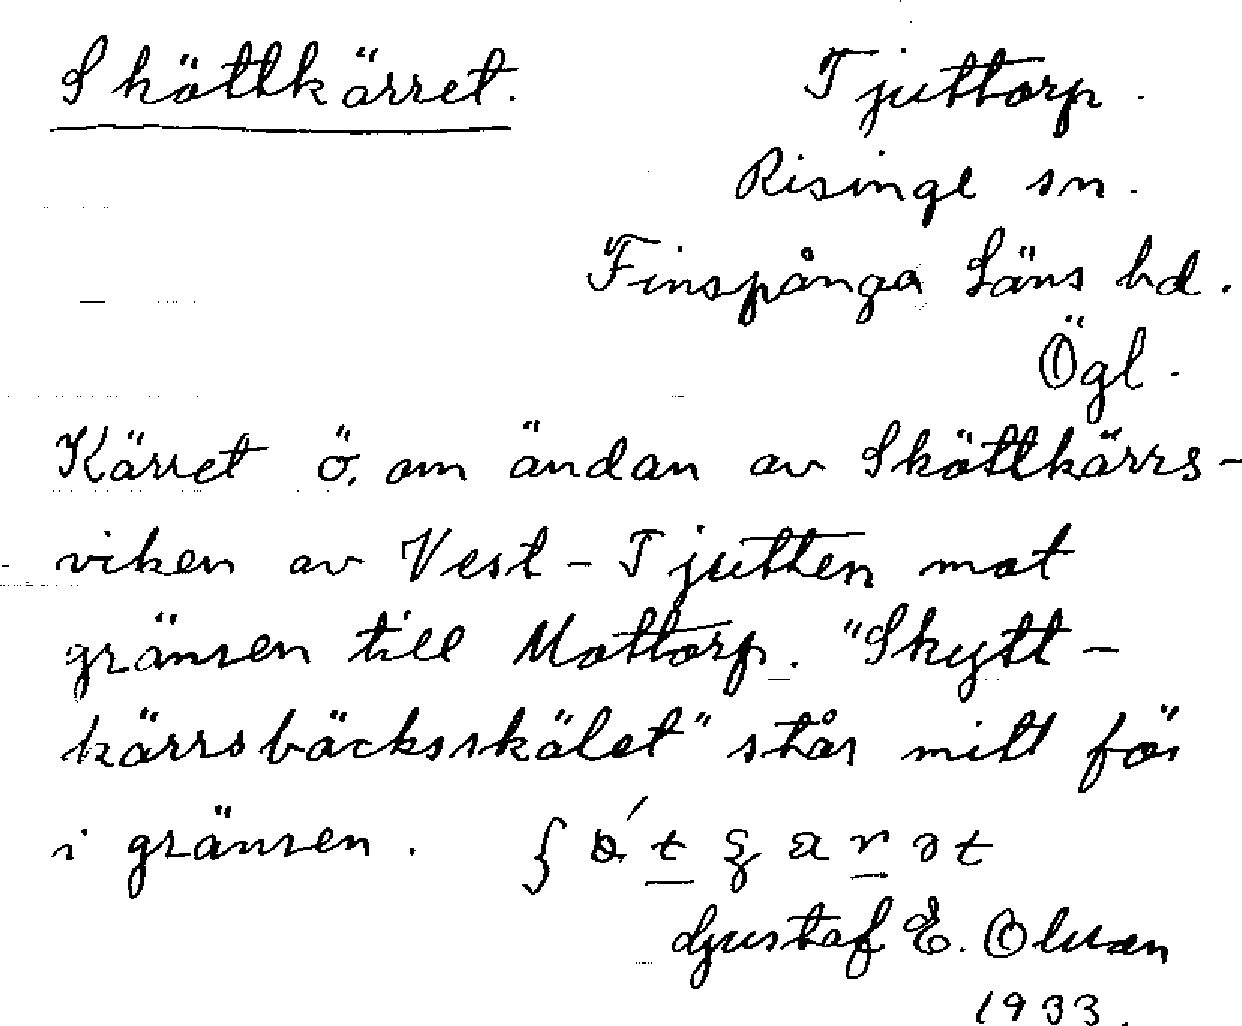 Sköttkärret.
Tjuttorp.
Risinge sn.
Finspånga Läns hd.
Ögl.
Kärret ö. om ändan av Sköttkärrs-
viken av Vest-Tjutten mot
gränsen till Mottorp. "Skytt-
kärrsbäcksskälet" står mitt för
i gränsen.
Gustaf E. Olsson
1933.